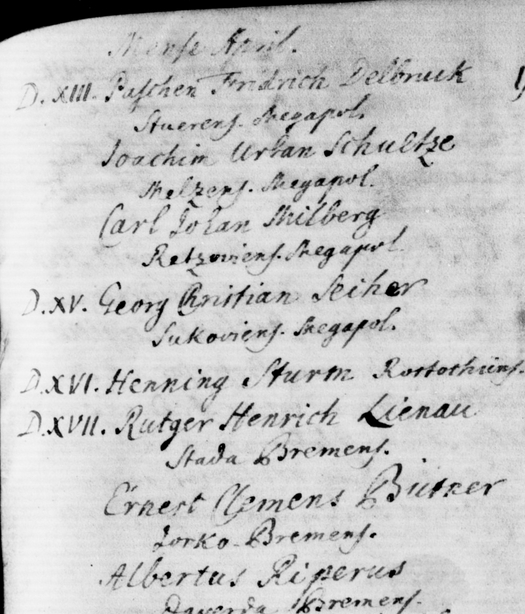 Mense April.
D. XIII. Paschen Fridrich Delbruck
Stuerens. Megapol.
Joachim Urban Schultze
Melzens. Megapol.
Carl Johan Milberg
Retzoviens. Megapol.
D. XV. Georg Christian Seiher
Sukoviens. Megapol.
D. XVI. Henning Sturm Rostochiens.
D. XVII. Rutger Henrich Lienau
Stada Bremens.
Ernest Clemens Bütner
Jorko-Bremens.
Albertus Riperus
Daverda Bremens.